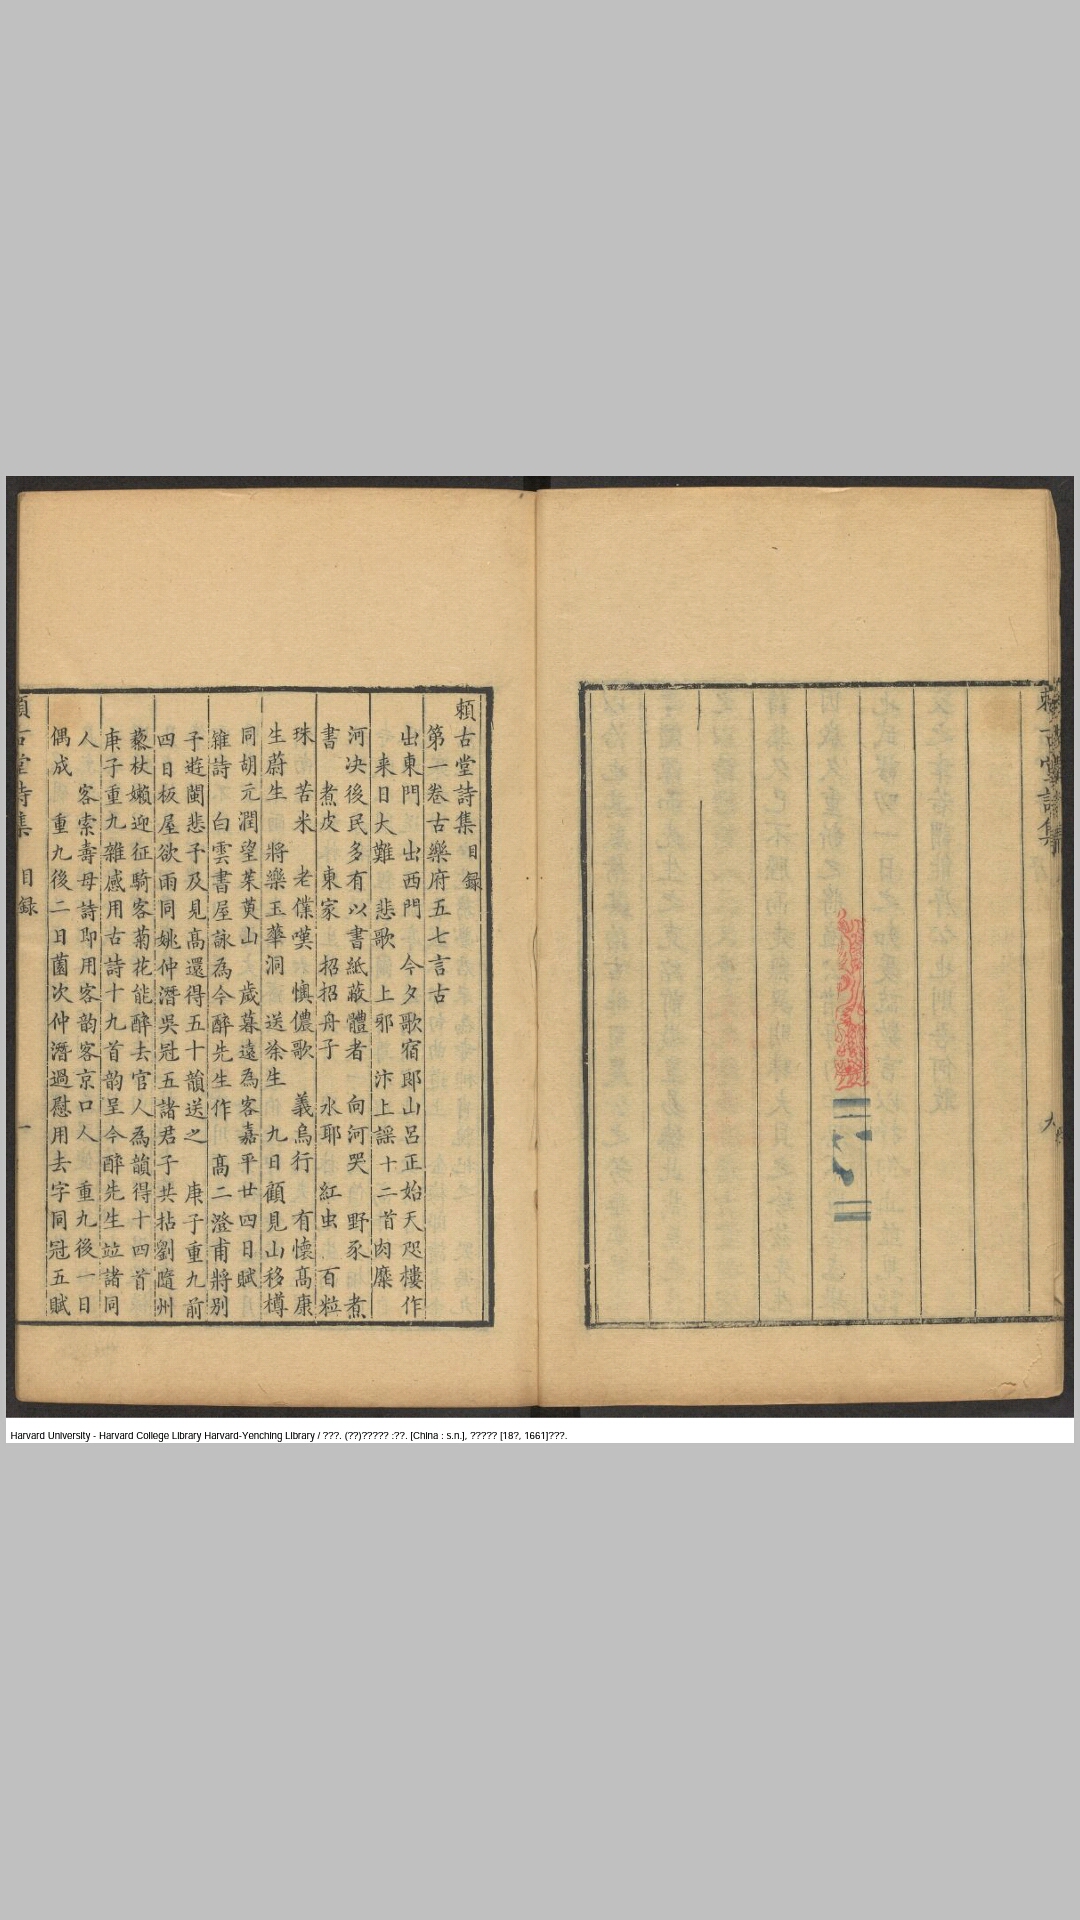 賴古堂詩集
賴古堂詩集目録
第一卷古樂府五七言古
出東門 出西門 今夕歌宿郎山呂正始天咫樓作
来日大難 悲歌 上邪 汴上謡十二首肉糜
河决後民多有以書紙蔽體者 向河哭 野豕 煮
書 煮皮 東家 招招舟子 水耶 紅虫 百粒
珠 苦米 老僕嘆 懊儂歌 義烏行 有懷高康
生蔚生 將樂玉華洞 送徐生 九日顧見山移樽
同胡元潤望茱萸山 歲暮遠為客嘉平廿四日賦
雜詩 白雲書屋詠為今醉先生作 高二澄甫將别
子遊閩悲予及見高還得五十韻送之 庚子重九前
四日板屋欲雨同姚仲潛吳冠五諸君子共拈劉隨州
藜杖嬾迎征騎客菊花能醉去官人為韻得十四首
庚子重九雜感用古詩十九首韵呈今醉先生竝諸同
人 客索壽母詩即用客韵客京口人 重九後一日
偶成 重九後二日菌次仲潛過慰用去字同冠五賦
賴古堂詩集 目録 一
Harvard University - Harvard College Library Harvard-Yenching Library / ???. (??)????? :??. [China : s.n.], ????? [18?, 1661]???.